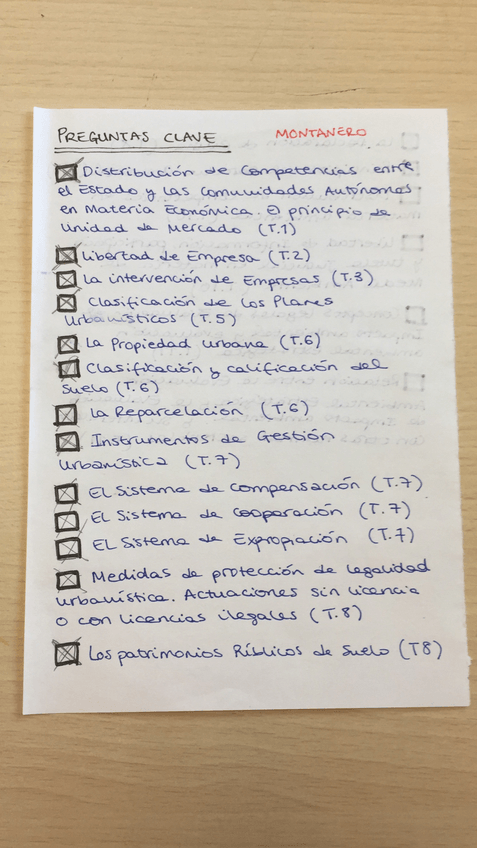 PREGUNTAS CLAVE MONTANERO
Distribución de Competencias entre
el Estado y las Comunidades Autónomas
en Materia Económica. El principio de
Unidad de Mercado (T.1)
Libertad de Empresa (T.2)
La intervención de Empresas (T.3)
Clasificación de los Planes
Urbanísticos (T.5)
La Propiedad urbana (T.6)
Clasificación y calificación del
Suelo (T.6)
La Reparcelación (T.6)
Instrumentos de Gestión
Urbanística (T.7)
EL Sistema de Compensación (T.7)
EL Sistema de Cooperación (T.7)
EL Sistema de Expropiación (T.7)
Medidas de protección de legalidad
urbanística. Actuaciones sin licencia
o con licencias ilegales (T.8)
Los patrimonios Públicos de Suelo (T8)